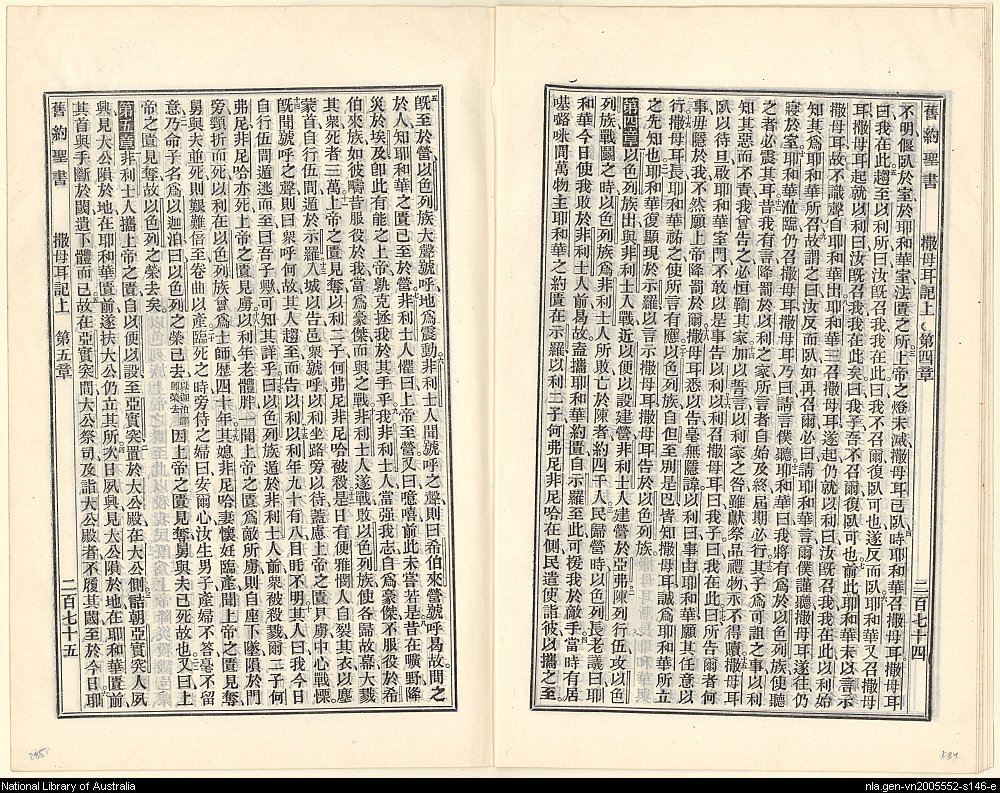 舊約聖書 撒母耳記上 第四章 二百七十四
不明偃臥於室於耶和華室法匱之所上帝之燈未滅撒母耳已臥時耶和華召撒母耳撒母耳
曰我在此趨至以利所曰汝旣召我我在此曰我不召爾復臥可也遂反而臥耶和華又召撒母
耳撒母耳起就以利曰汝旣召我我在此曰我子吾不召爾復臥可也前此耶和華未以言示
撒母耳故不識聲自耶和華出耶和華三召撒母耳遂起仍就以利曰汝旣召我我在此以利始
知其爲耶和華所召故謂之曰汝反而臥如再召爾必曰請耶和華言爾僕謹聽撒母耳遂往仍
寢於室耶和華涖臨仍召撒母耳撒母耳乃曰請言僕聽耶和華曰我將有爲於以色列族使聽
之者必震其耳昔我有言降罰於以利之家所言者自始及終屆期必行其子爲可詛之事以利
知其惡而不責我曾告之必恒鞫其家加以誓言以利家之咎雖獻祭品禮物永不得贖撒母耳
臥以待旦啟耶和華室門不敢以是事告以利以利召撒母耳曰我子曰我在此曰所告爾者何
事毋隱於我不然願上帝降罰於爾撒母耳悉以告毫無隱諱以利曰事由耶和華願其任意以
行撒母耳長耶和華祐之使所言有應以色列族自但至別是巴皆知撒母耳誠爲耶和華所立
之先知也耶和華復顯現於示羅以言示撒母耳撒母耳告於以色列族
第四章以色列族出與非利士人戰近以便以設建營非利士人建營於亞弗陳列行伍攻以色
列族戰鬭之時以色列族爲非利士人所敗亡於陳者約四千人民歸營時以色列長老議曰耶
和華今日使我敗於非利士人前曷故盍攜耶和華約匱自示羅至此可援我於敵手當時有居
𠼻𡀔啉間萬物主耶和華之約匱在示羅以利二子何弗尼非尼哈在側民遣使詣彼以攜之至
旣至於營以色列族大聲號呼地爲震動非利士人聞號呼之聲則曰希伯來營號呼曷故間之
於人知耶和華之匱已至於營非利士人懼曰上帝至營又曰噫嘻前此未嘗若是昔在曠野降
災於埃及卽此有能之上帝孰克拯我於其手乎我非利士人當强我志自爲豪傑不服役於希
伯來族如彼疇昔服役於我當爲豪傑而與之戰非利士人遂戰敗以色列族使各歸故幕大戮
其衆死者三萬上帝之匱見奪以利二子何弗尼非尼哈被殺是日有便雅憫人自裂其衣以塵
蒙首自行伍間遁於示羅入城以告邑衆號呼以利坐路旁以待蓋慮上帝之匱見虜中心戰慄
旣聞號呼之聲則曰衆呼何故其人趨至而告以利以利年九十有八目眊不明其人曰我今日
自行伍間遁逃而至曰吾子戀可知其詳乎曰以色列族遁於非利士人前衆被殺戮爾二子何
弗尼非尼哈亦死上帝之匱見虜以利年老體胖一聞上帝之匱爲敵所虜則自座下墜隕於門
旁頸折而死以利在以色列族曾爲士師歷四十年其媳非尼哈妻懷妊臨產聞上帝之匱見奪
舅與夫並死則艱難倍至卷曲以產臨死之時旁侍之婦曰安爾心汝生男子產婦不答毫不留
意乃命子名爲以迦泊曰以色列之榮已去以迦泊譯卽榮去因上帝之匱見奪舅與夫已死故也又曰上
帝之匱見奪故以色列之榮去矣
第五章非利士人攜上帝之匱自以便以設至亞實突置於大公殿在大公側詰朝亞實突人夙
興見大公隕於地在耶和華匱前遂扶大公仍立其所次日夙興見大公隕於地在耶和華匱前
其首與手斷於閾遺下體而已故在亞實突間大公祭司及詣大公殿者不履其國至於今日耶
舊約聖書 撒母耳記上 第五章 二百七十五
285
284
National Library of Australia
nla.gen-vn2005552-s146-e